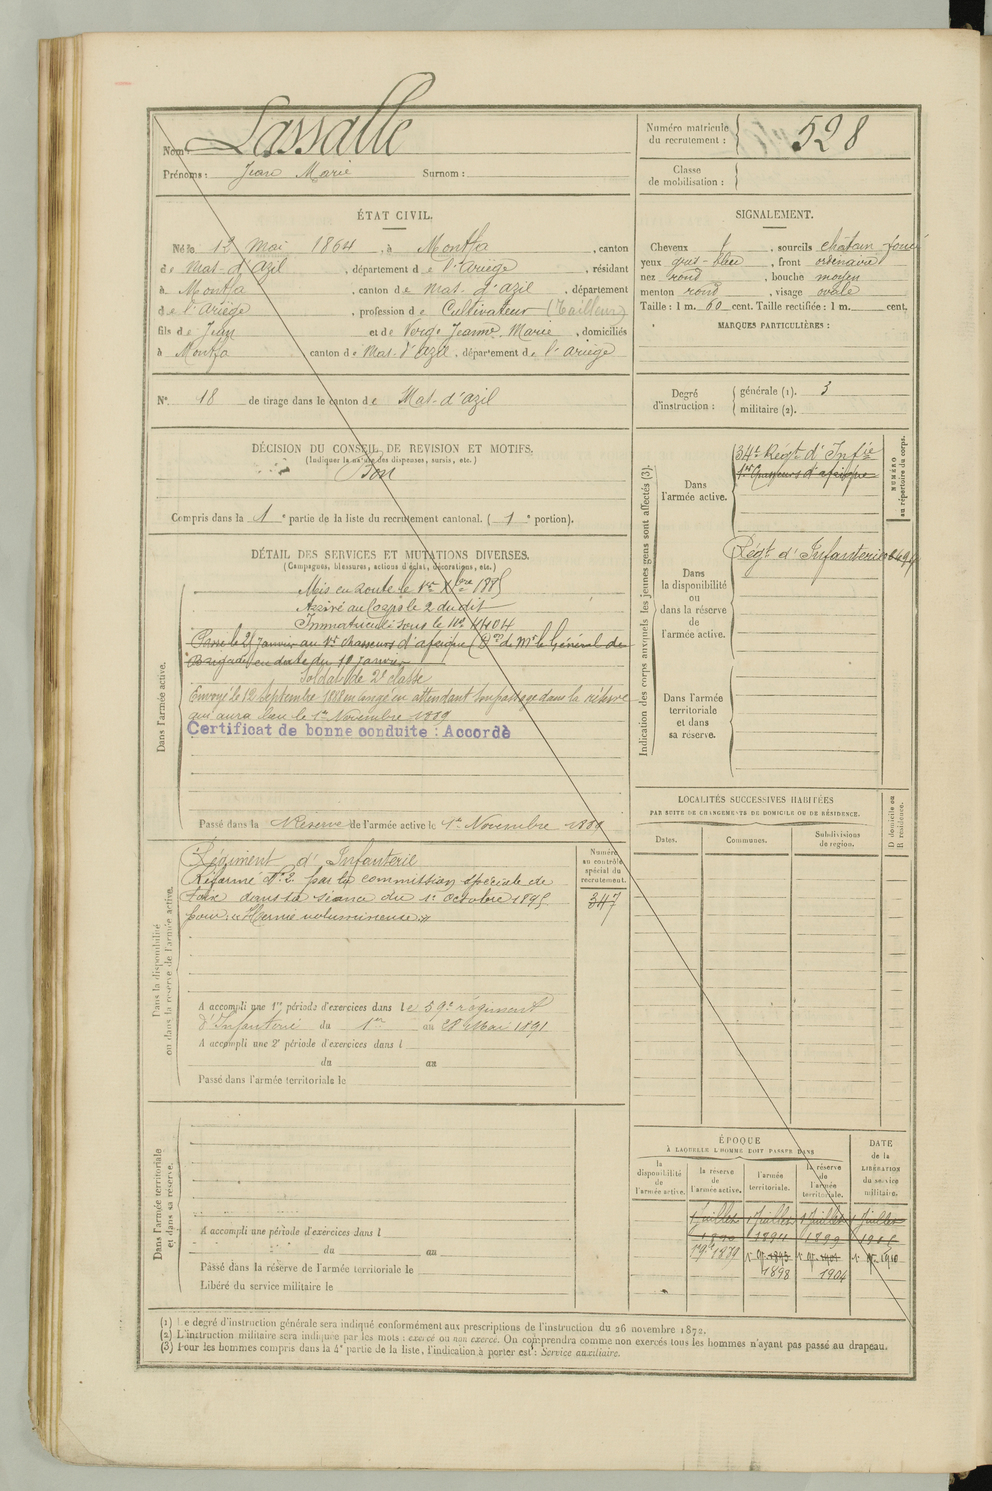 Nom: Lassalle
Prénoms: Jean Marie Surnom:
Numéro matricule du recrutement: 528
Classe de mobilisation:
ÉTAT CIVIL.
Né le 12 Mai 1864, à Montfa, canton
de Mas-d'azil, département de l'Ariège, résidant
à Montfa, canton de Mas-d'azil, département
de l'ariège, profession de Cultivateur (Tailleur)
fils de Jean et de Vergé Jeanne Marie, domiciliés
à Montfa canton de Mas-d'azil, département de l'ariège
N° 18 de tirage dans le canton de Mas-d'azil
SIGNALEMENT.
Cheveux , sourcils châtain foncé
yeux gris-bleu, front ordinaire
nez rond, bouche moyen
menton rond, visage ovale
Taille: 1 m. 60 cent. Taille rectifiée: 1 m. cent.
MARQUES PARTICULIÈRES:
Degré d'instruction: générale (1). 3
militaire (2).
DÉCISION DU CONSEIL DE REVISION ET MOTIFS.
(Indiquer la nature des dispenses, sursis, etc.)
Bon
Compris dans la 1e partie de la liste du recrutement cantonal. (1e portion).
DÉTAIL DES SERVICES ET MUTATIONS DIVERSES.
(Campagnes, blessures, actions d'éclat, décorations, etc.)
Dans l'armée active.
Mis en route le 1er Xbre 1885
Arrivé au Corps le 2 dudit
Immatriculé sous le No 4404
Passé le 21 Janvier au 1er Chasseurs d'afrique (Don de Mr le Général de
Brigade en date du 19 Janvier
Soldat de 2e classe
Envoyé le 12 Septembre 1888 en congé en attendant son passage dans la réserve
qui aura lieu le 1er Novembre 1889
Certificat de bonne conduite: Accordé
Passé dans la Réserve de l'armée active le 1er Novembre 1889
Indication des corps auxquels les jeunes gens sont affectés (3).
NUMÉRO au répertoire du corps.
Dans l'armée active.
34e Régt d'Infie
1er Chasseurs d'afrique
Dans la disponibilité ou dans la réserve de l'armée active.
Régt d'Infanterie
Dans l'armée territoriale et dans sa réserve.
LOCALITÉS SUCCESSIVES HABITÉES
PAR SUITE DE CHANGEMENTS DE DOMICILE OU DE RÉSIDENCE.
D domicile ou R résidence.
Dates. Communes. Subdivisions de région.
Dans la disponibilité ou dans la réserve de l'armée active.
Régiment d'Infanterie
Réformé No 2 par la commission spéciale de
Foix dans sa séance du 1er Octobre 1895
pour: "Hernie volumineuse"
Numéro au contrôle spécial du recrutement.
347
A accompli une 1re période d'exercices dans le 59e régiment
d'Infanterie du 1er au 28 Mai 1891
A accompli une 2e période d'exercices dans l
du au
Passé dans l'armée territoriale le
Dans l'armée territoriale et dans sa réserve.
A accompli une période d'exercices dans l
du au
Passé dans la réserve de l'armée territoriale le
Libéré du service militaire le
ÉPOQUE
À LAQUELLE L'HOMME DOIT PASSER DANS
la disponibilité de l'armée active.
la réserve de l'armée active.
l'armée territoriale.
la réserve de l'armée territoriale.
DATE de la LIBÉRATION du service militaire.
1 Juillet 1 Juillet 1 Juillet 1 Juillet
1894 1899
1898 1904
(1) Le degré d'instruction générale sera indiqué conformément aux prescriptions de l'instruction du 26 novembre 1872.
(2) L'instruction militaire sera indiquée par les mots: exercé ou non exercé. On comprendra comme non exercés tous les hommes n'ayant pas passé au drapeau.
(3) Pour les hommes compris dans la 4e partie de la liste, l'indication à porter est: Service auxiliaire.